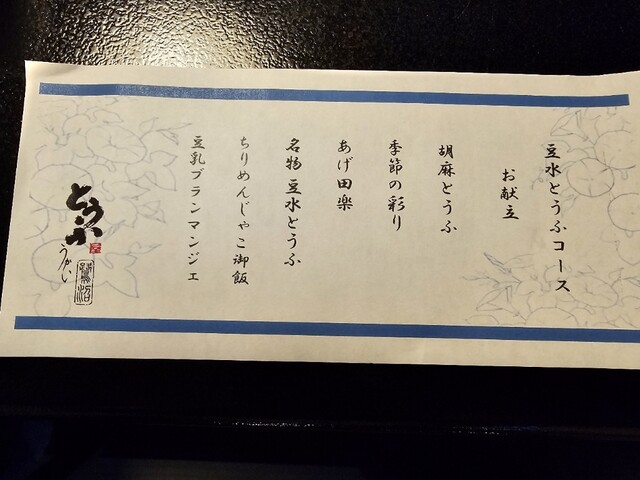 豆水とうふコース
お献立
胡麻とうふ
季節の彩り
あげ田楽
名物 豆水とうふ
ちりめんじゃこ御飯
豆乳ブランマンジェ
とうふ
うかい
鷺沼